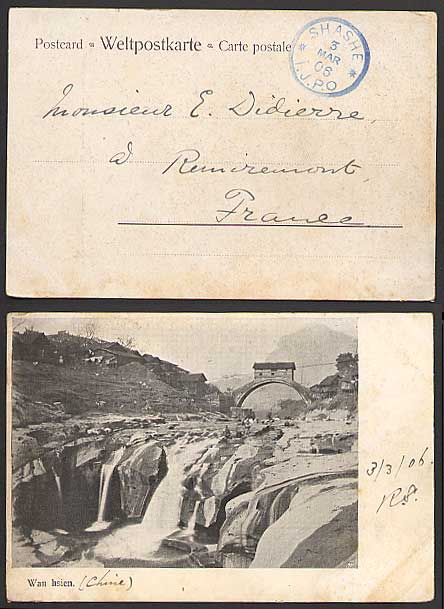 Postcard Weltpostkarte Carte postale
SHASHI
3
MAR
06
I.J.P.O
Monsieur E. Didierre,
à Remiremont,
France
3/3/06
Wan hsien. (Chine)